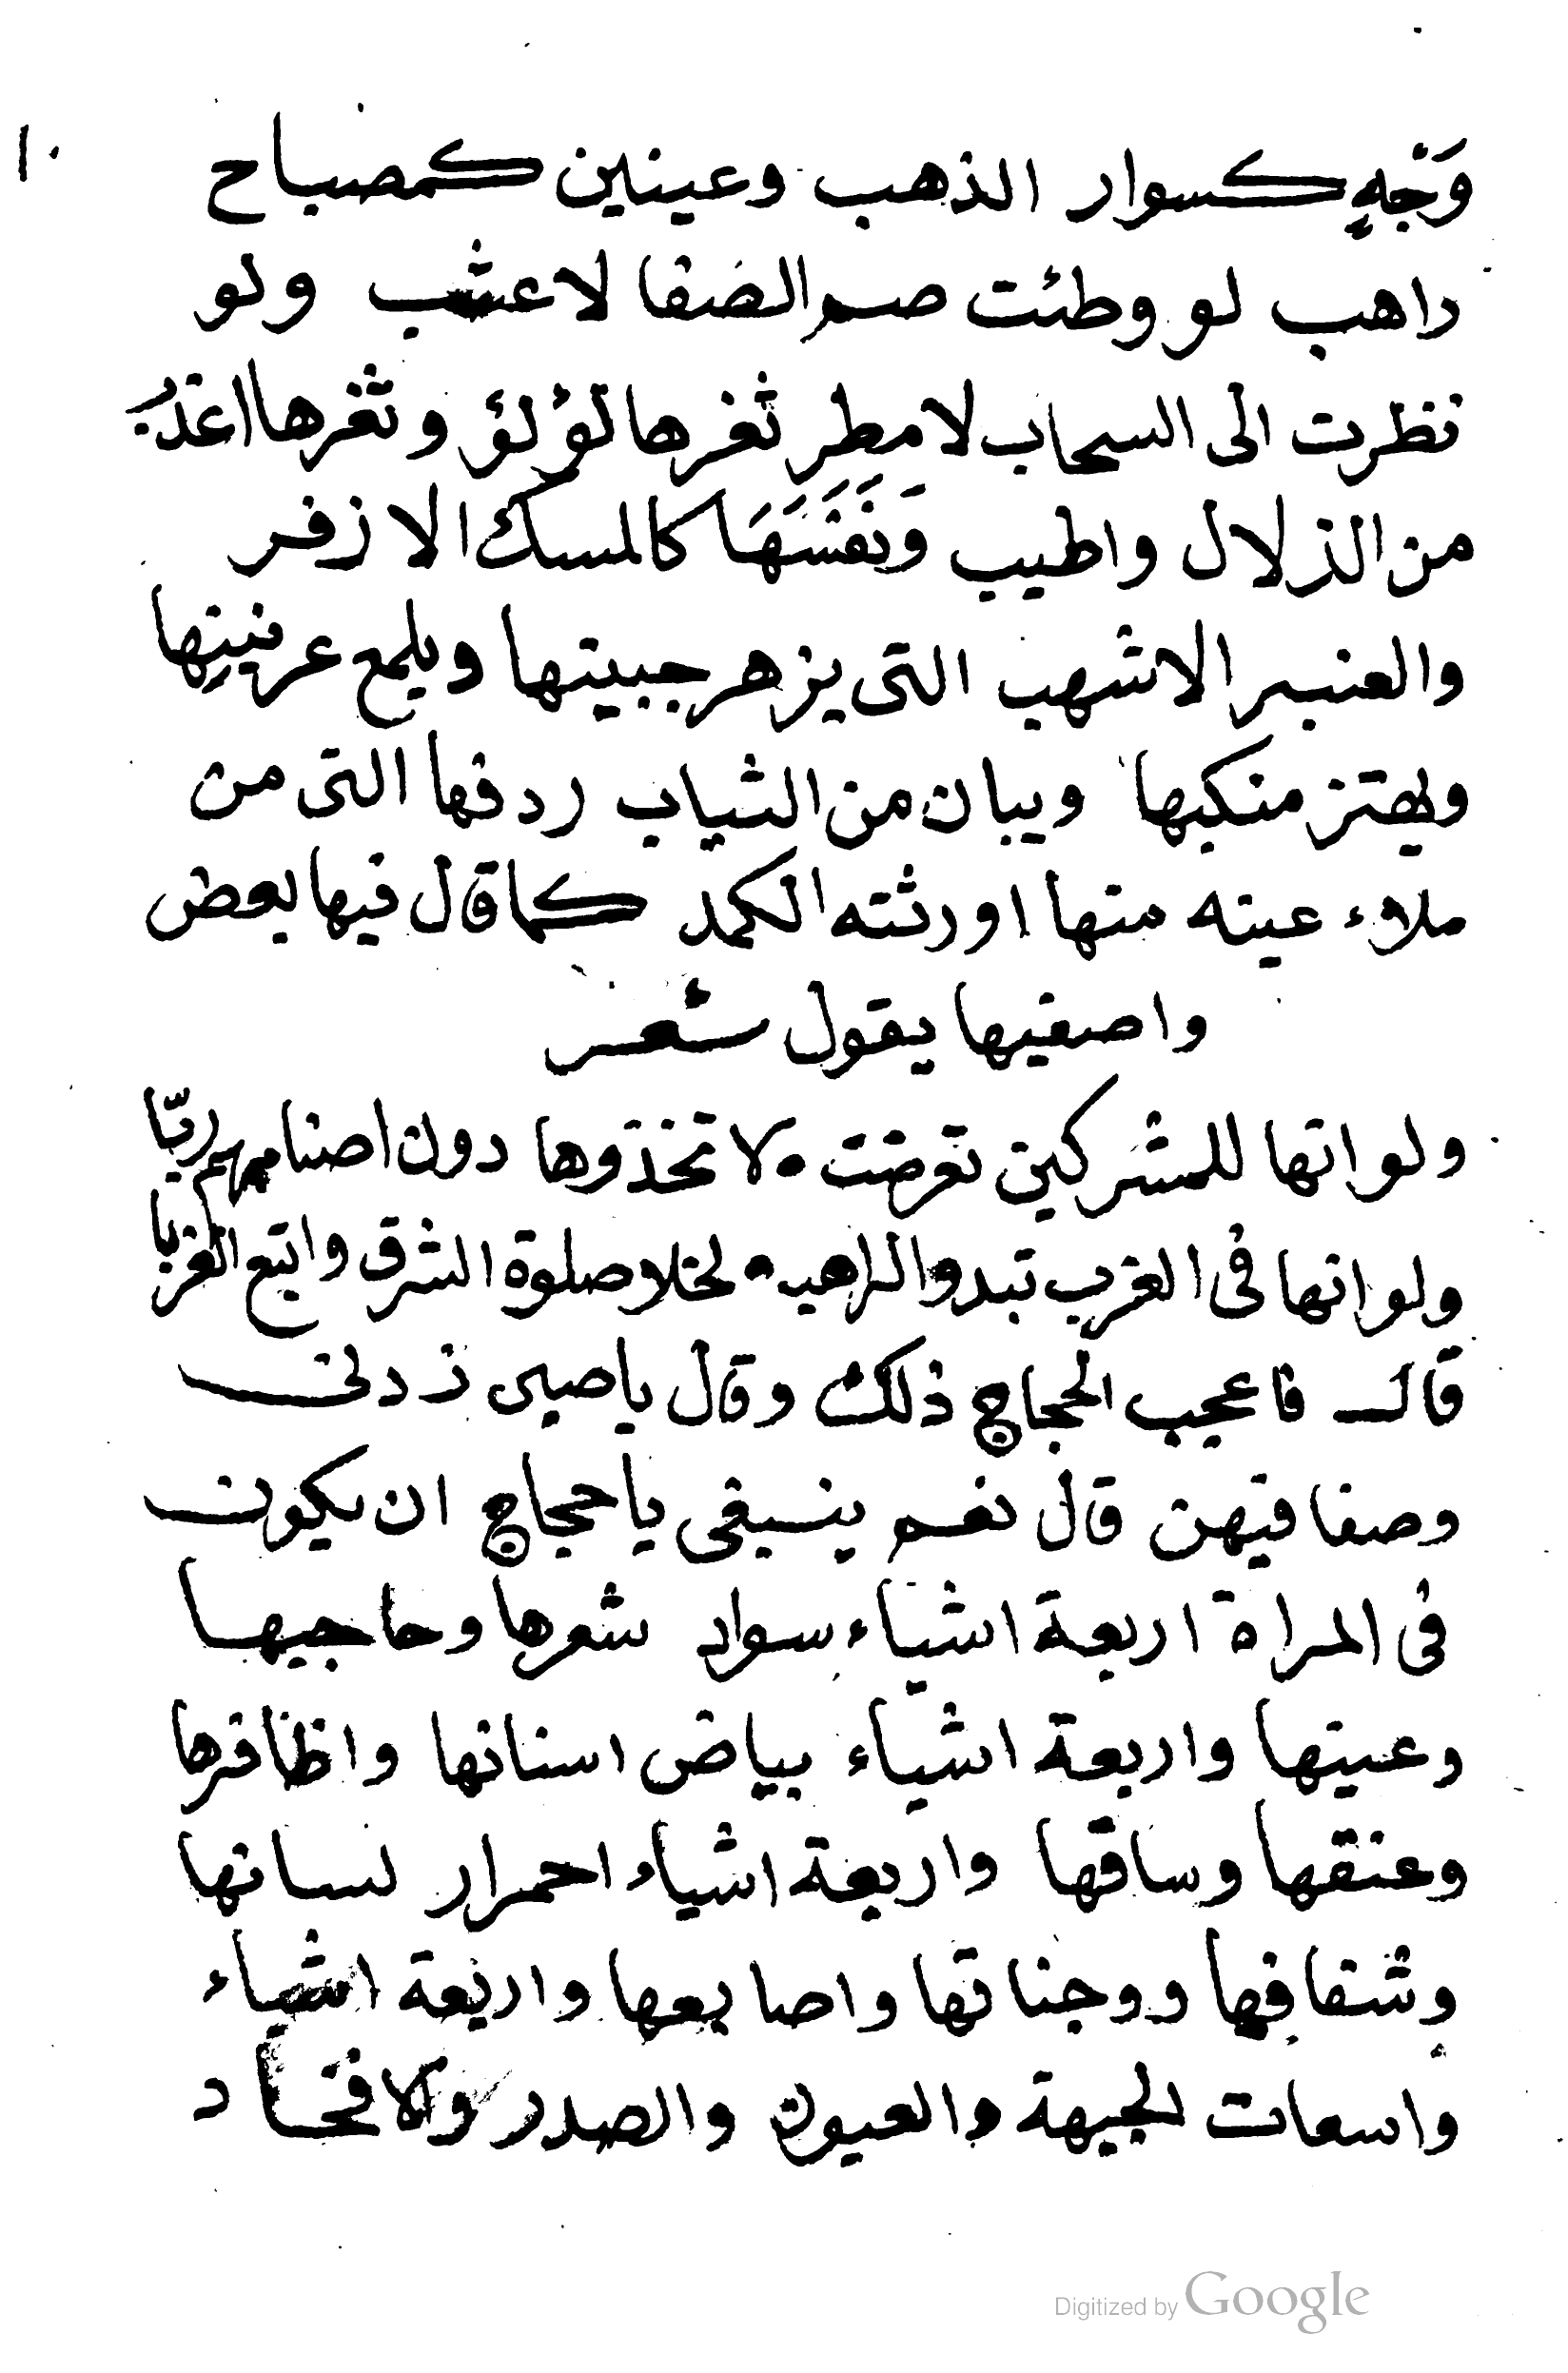 ١٠
وَجْهٍ كسوار الذهب وعينين كمصباح
راهب لو وطئت صم الصفا لاعشب ولو
نظرت الى السحاب لامطر ثغرها لؤلؤ وثغرها اعذبُ
من الزلال واطيب وَنَفَسَهَا كالمسك الازفر
والعنبر الاشهب التى يزهر جبينها ويلمع عرنينها
ويهتز منكبها ويبان من الثياب ردفها التى من
ملاء عينه منها اورثته الكمد كما قال فيها بعض
واصفيها يقول شعر
ولو انها للمشركين تعرضت ۰ لا تخذوها دون اصنامهم ربّا
ولو انها فى الغرب تبدو لراهب ۰ لخلا صلوة الشرق واتبع الغربا
قال فاعجب الحجاج ذلك وقال ياصبى زدنى
وصفا فيهن قال نعم ينبغى يا حجاج ان يكون
فى المراة اربعة اشياء سواد شعرها وحاجبيها
وعينها واربعة اشياء بياض اسنانها واظافرها
وعنقها وساقها واربعة اشياء احمرار لسانها
وشفافها ووجناتها واصابعها واربعة اشياء
واسعات الجبهة والعيون والصدر والافخاد
Digitized by Google